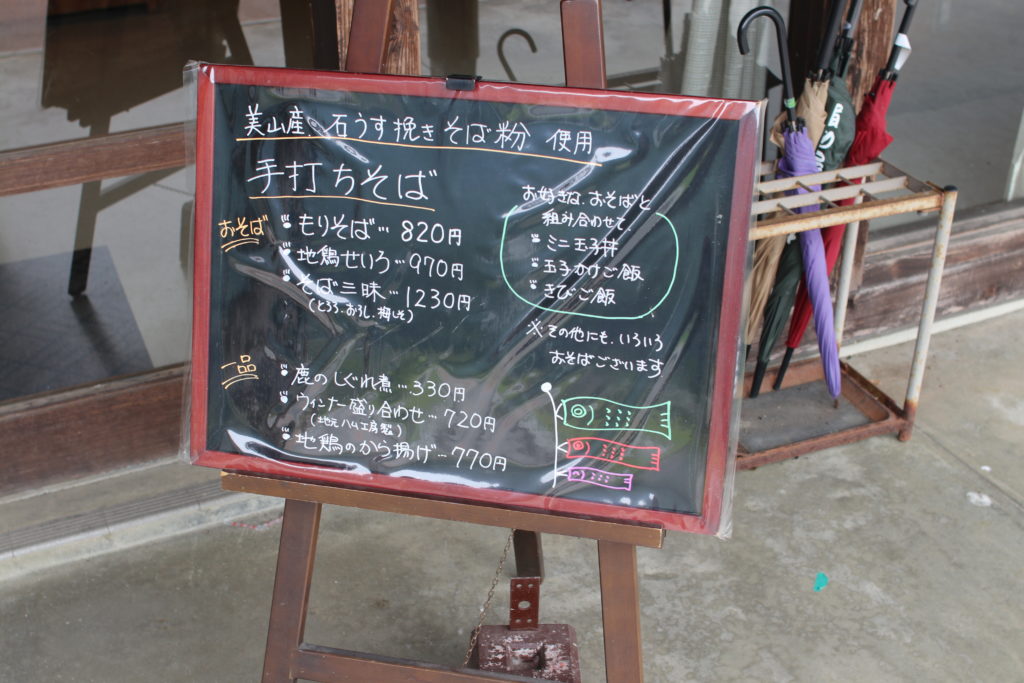 美山産 石うす挽きそば粉 使用
手打ちそば
おそば
もりそば… 820円
地鶏せいろ…970円
そば三昧…1230円
(とろろ、おろし、梅しそ)
一品
鹿のしぐれ煮…330円
ウィンナー盛り合わせ…720円
(地元ハム工房製)
地鶏のから揚げ…770円
お好きな、おそばと
組み合わせて、
ミニ玉子丼
玉子かけご飯
きびご飯
※その他にも、いろいろ
おそばございます